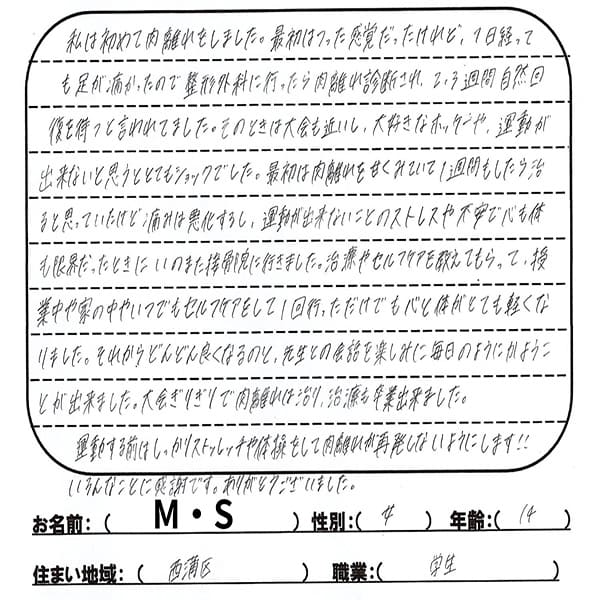 私は初めて肉離れをしました。最初はつった感覚だったけれど、1日経って
も足が痛かったので整形外科に行ったら肉離れ診断され、2、3週間自然回
復を待つと言われてました。そのときは大会も近いし、大好きなホッケーや、運動が
出来ないと思うととてもショックでした。最初は肉離れを甘くみていて1週間もしたら治
ると思っていたけど痛みは悪化するし、運動が出来ないことのストレスや不安で心も体
も限界だったときに いのまた接骨院に行きました。治療やセルフケアを教えてもらって、授
業中や家の中やいつでもセルフケアをして1回行っただけでも心と体がとても軽くな
りました。それからどんどん良くなるのと、先生との会話を楽しみに毎日のようにかようこ
とが出来ました。大会ぎりぎりで肉離れは治り、治療も卒業出来ました。
運動する前はしっかりストレッチや体操をして肉離れが再発しないようにします!!
いろんなことに感謝です。ありがとうございました。
お名前:( M・S ) 性別:( 女 ) 年齢:( 14 )
住まい地域:( 西蒲区 ) 職業:( 学生 )